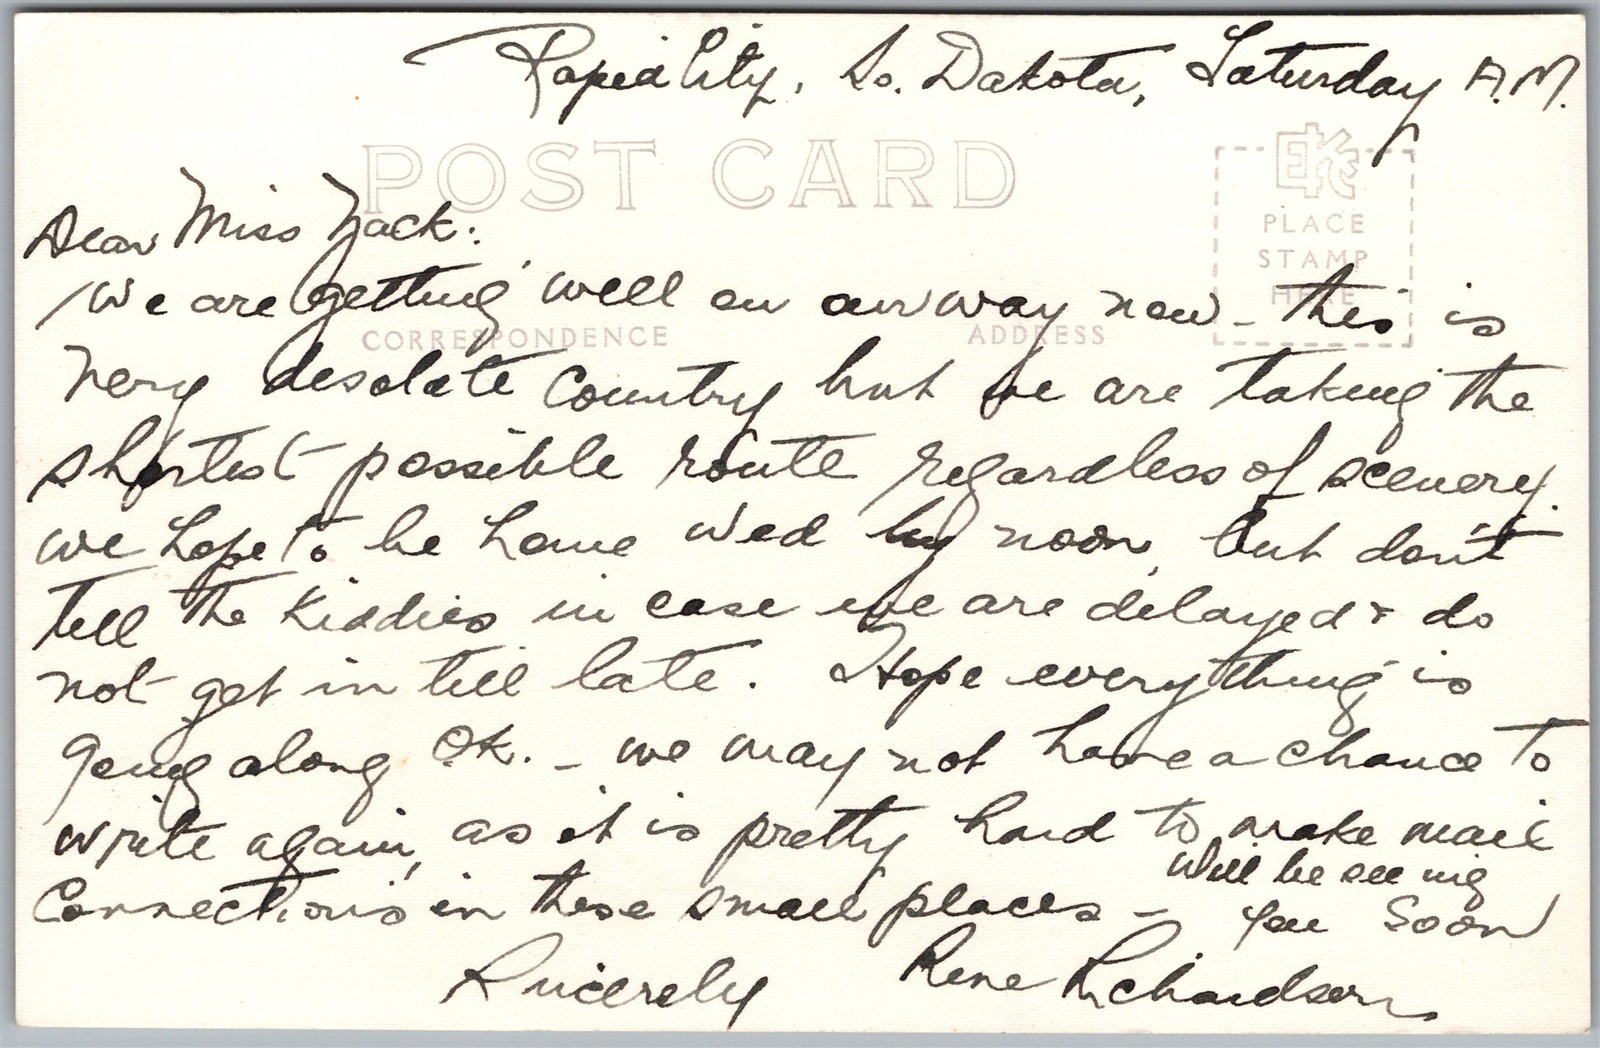 Rapid City, So. Dakota, Saturday A.M.
POST CARD
EKC
PLACE
STAMP
HERE
Dear Miss Nack:
We are getting well on our way now - this is
CORRESPONDENCE ADDRESS
very desolate country but we are taking the
shortest possible route regardless of scenery.
we hope to be home Wed by noon, but don't
tell the Kiddies in case we are delayed & do
not get in till late. Hope everything is
going along OK. - we may not have a chance to
write again, as it is pretty hard to make mail
connections in these small places - Will be seeing
you soon
Sincerely Rene Richardson